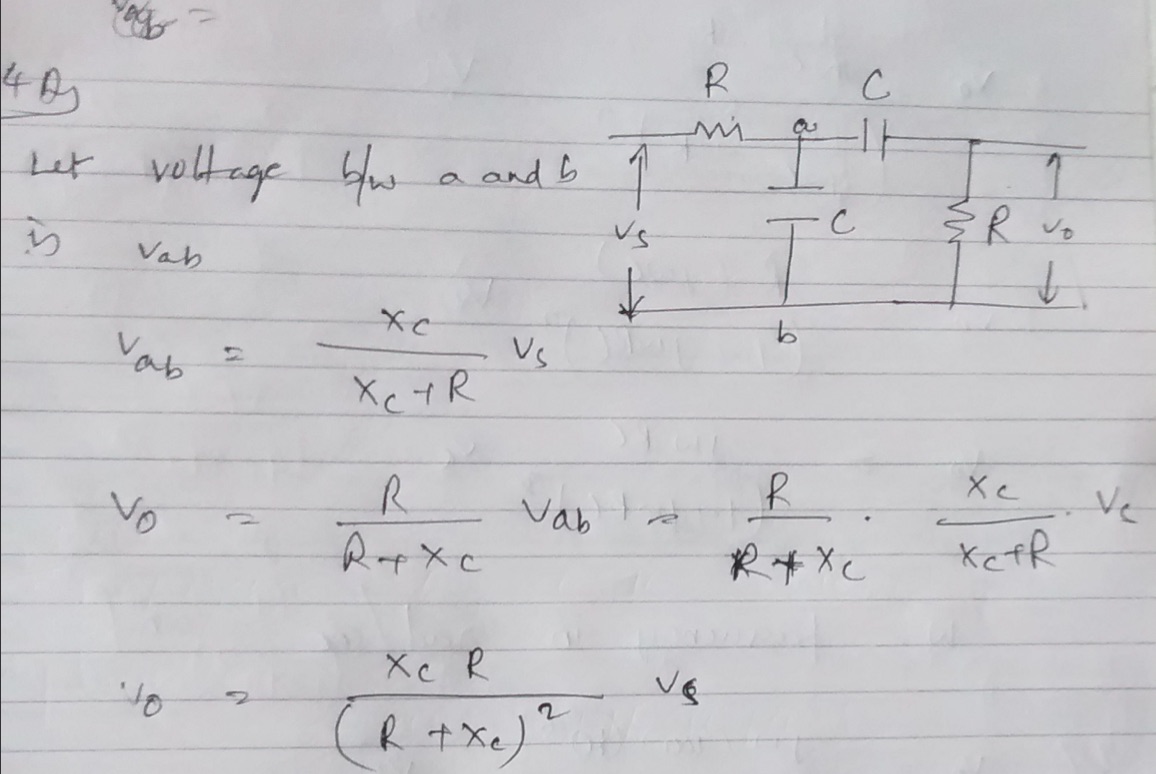 4 Ans
R C
Let voltage b/w a and b
a
is Vab
Vs C R Vo
b
Vab = Xc / Xc + R Vs
Vo = R / R + Xc Vab = R / R + Xc . Xc / Xc + R . Vs
Vo = Xc R / (R + Xc)² Vs